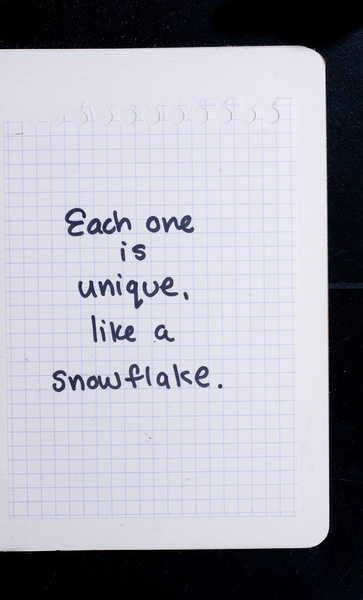 Each one
is
unique,
like a
snowflake.